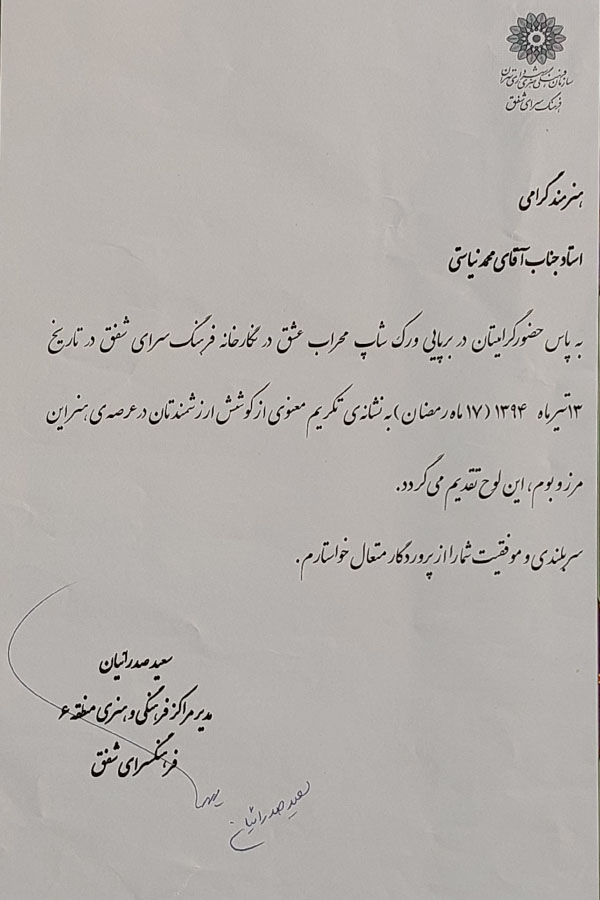 سازمان فرهنگی هنری شهرداری تهران
فرهنگ سرای شفق
هنرمند گرامی
استاد جناب آقای محمد نیاستی
به پاس حضور گرامیتان در برپایی ورک شاپ محراب عشق در نگارخانه فرهنگ سرای شفق در تاریخ
۱۳ تیرماه ۱۳۹۴ (۱۷ ماه رمضان) به نشانه‌ی تکریم معنوی از کوشش ارزشمندتان در عرصه‌ی هنر این
مرز و بوم، این لوح تقدیم می گردد.
سربلندی و موفقیت شما را از پروردگار متعال خواستارم.
سعید صدرائیان
مدیر مراکز فرهنگی و هنری منطقه ۶
فرهنگسرای شفق
سعید صدرائیان